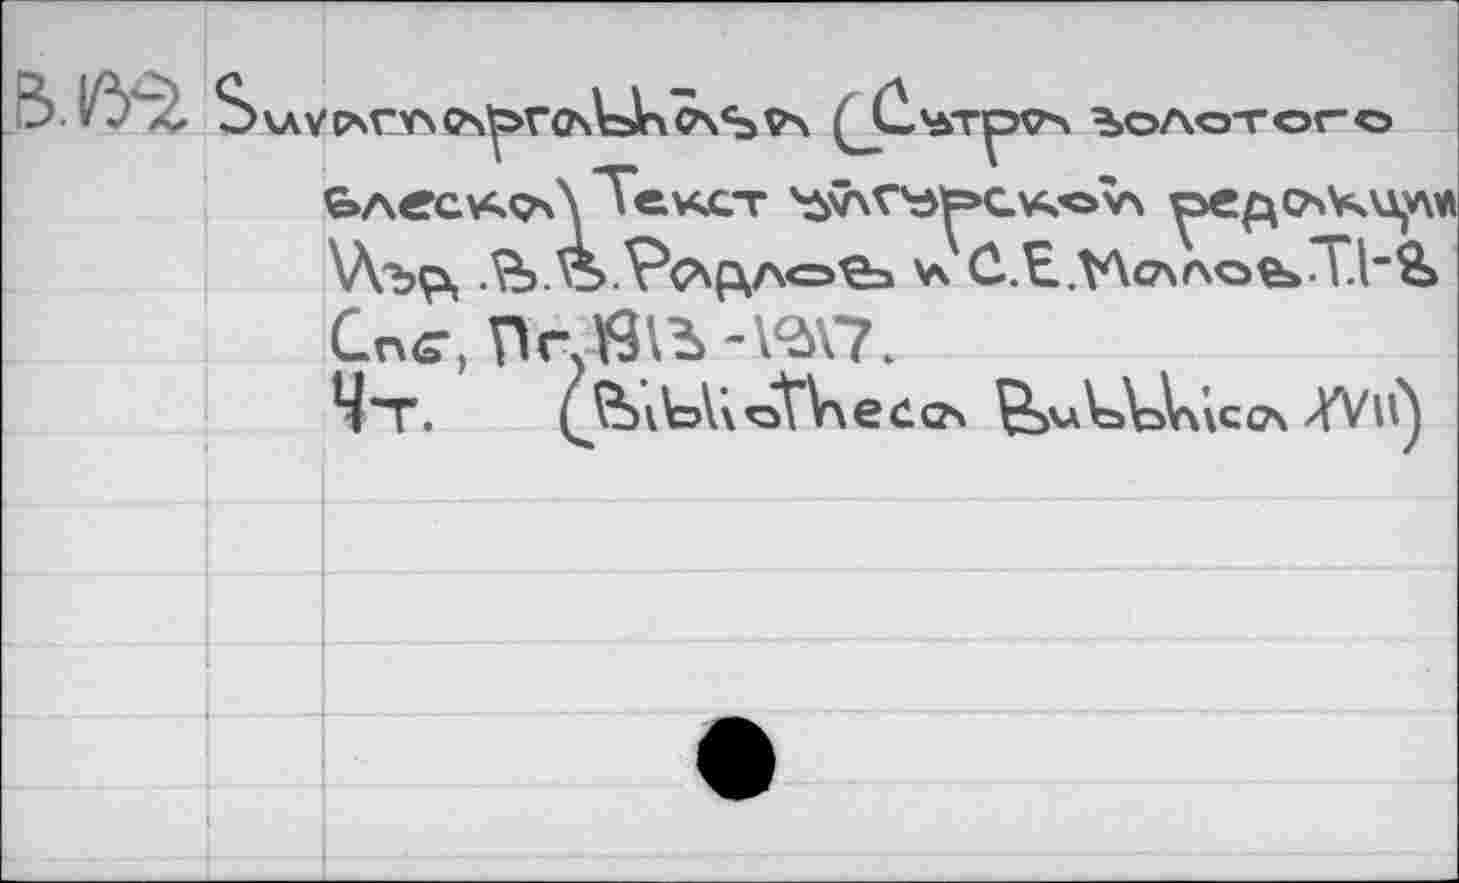 В.132 Suvarnaprabhāsa (Сутра золотого
блеска) Текст уйгурской редакции
Изд. В.В.Радлов и С.Е.Малов.Т.1-2
Спб, Пг, 1913 - 1917.
Чт. (Bibliotheca Buddhica XVII)